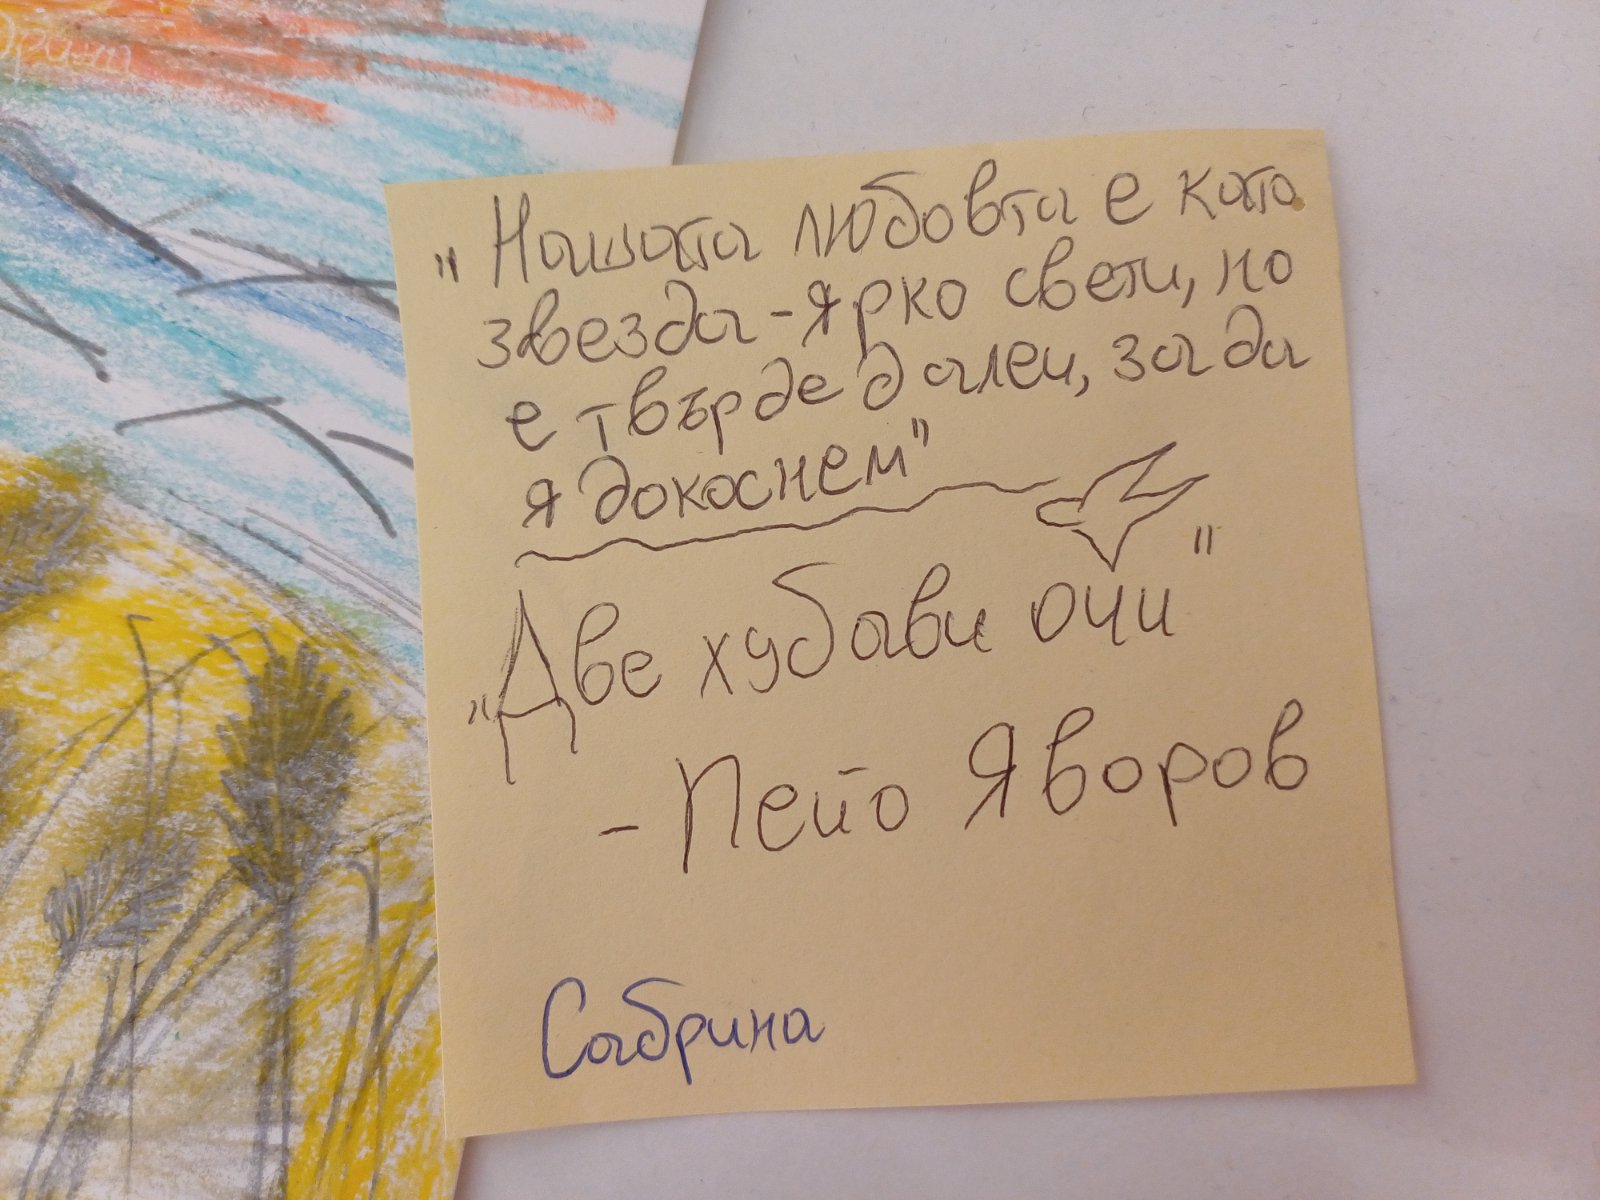 "Нашата любовта е като
звезда - ярко свети, но
е твърде далеч, за да
я докоснем"
„Две хубави очи"
- Пейо Яворов
Сабрина